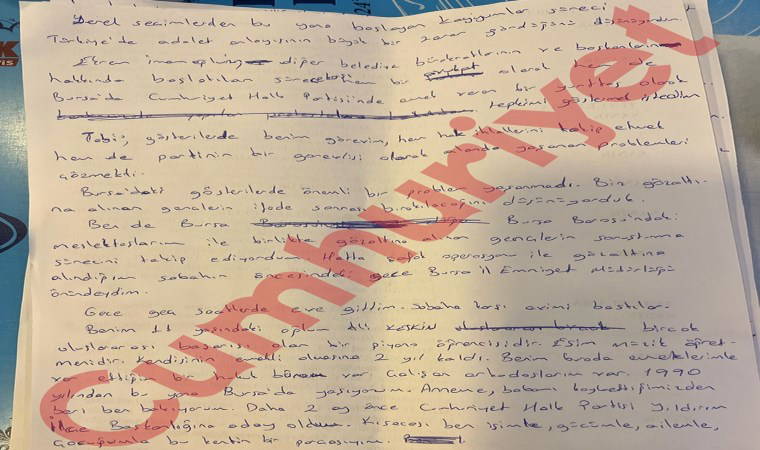 Yerel seçimlerden bu yana başlayan kayyumlar süreci
Türkiye'de adalet anlayışının büyük bir zarar gördüğünü düşünüyorum.
Ekrem İmamoğlu diğer belediye bürokratlarının ve başkanların
hakkında başlatılan süreç hem bir olarak hem de
Bursa'da Cumhuriyet Halk Partisinde emek veren bir yurttaş olarak
tepkimi göstermek istedim
Tabii, gösterilerde benim görevim, hem hak ihlallerini takip etmek
hem de partinin bir görevlisi olarak alanda yaşanan problemleri
çözmekti.
Bursa'daki gösterilerde önemli bir problem yaşanmadı. Biz gözaltı-
na alınan gençlerin ifade sonrası bırakılacağını düşünüyorduk.
Ben de Bursa Bursa Barosundaki
meslektaşlarım ile birlikte gözaltına alınan gençlerin soruşturma
sürecini takip ediyordum. Hatta şafak operasyonu ile gözaltına
alındığım sabahın öncesindeki gece Bursa İl Emniyet Müdürlüğü
önündeydim.
Gece geç saatlerde eve gittim. Sabaha karşı evimi bastılar.
Benim 11 yaşındaki oğlum Ali KESKİN birçok
uluslararası başarısı olan bir piyano öğrencisidir. Eşim müzik öğret-
menidir. Kendisinin emekli olmasına 2 yıl kaldı. Benim burada emeklerimle
var ettiğim bir hukuk bürom var. Çalışan arkadaşlarım var. 1990
yılından bu yana Bursa'da yaşıyorum. Anneme, babamı kaybettiğimizden
beri ben bakıyorum. Daha 2 ay önce Cumhuriyet Halk Partisi Yıldırım
İlçe Başkanlığına aday oldum. Kısacası ben işimle, gücümle, ailemle,
çocuğumla bu kentin bir parçasıyım.
Cumhuriyet